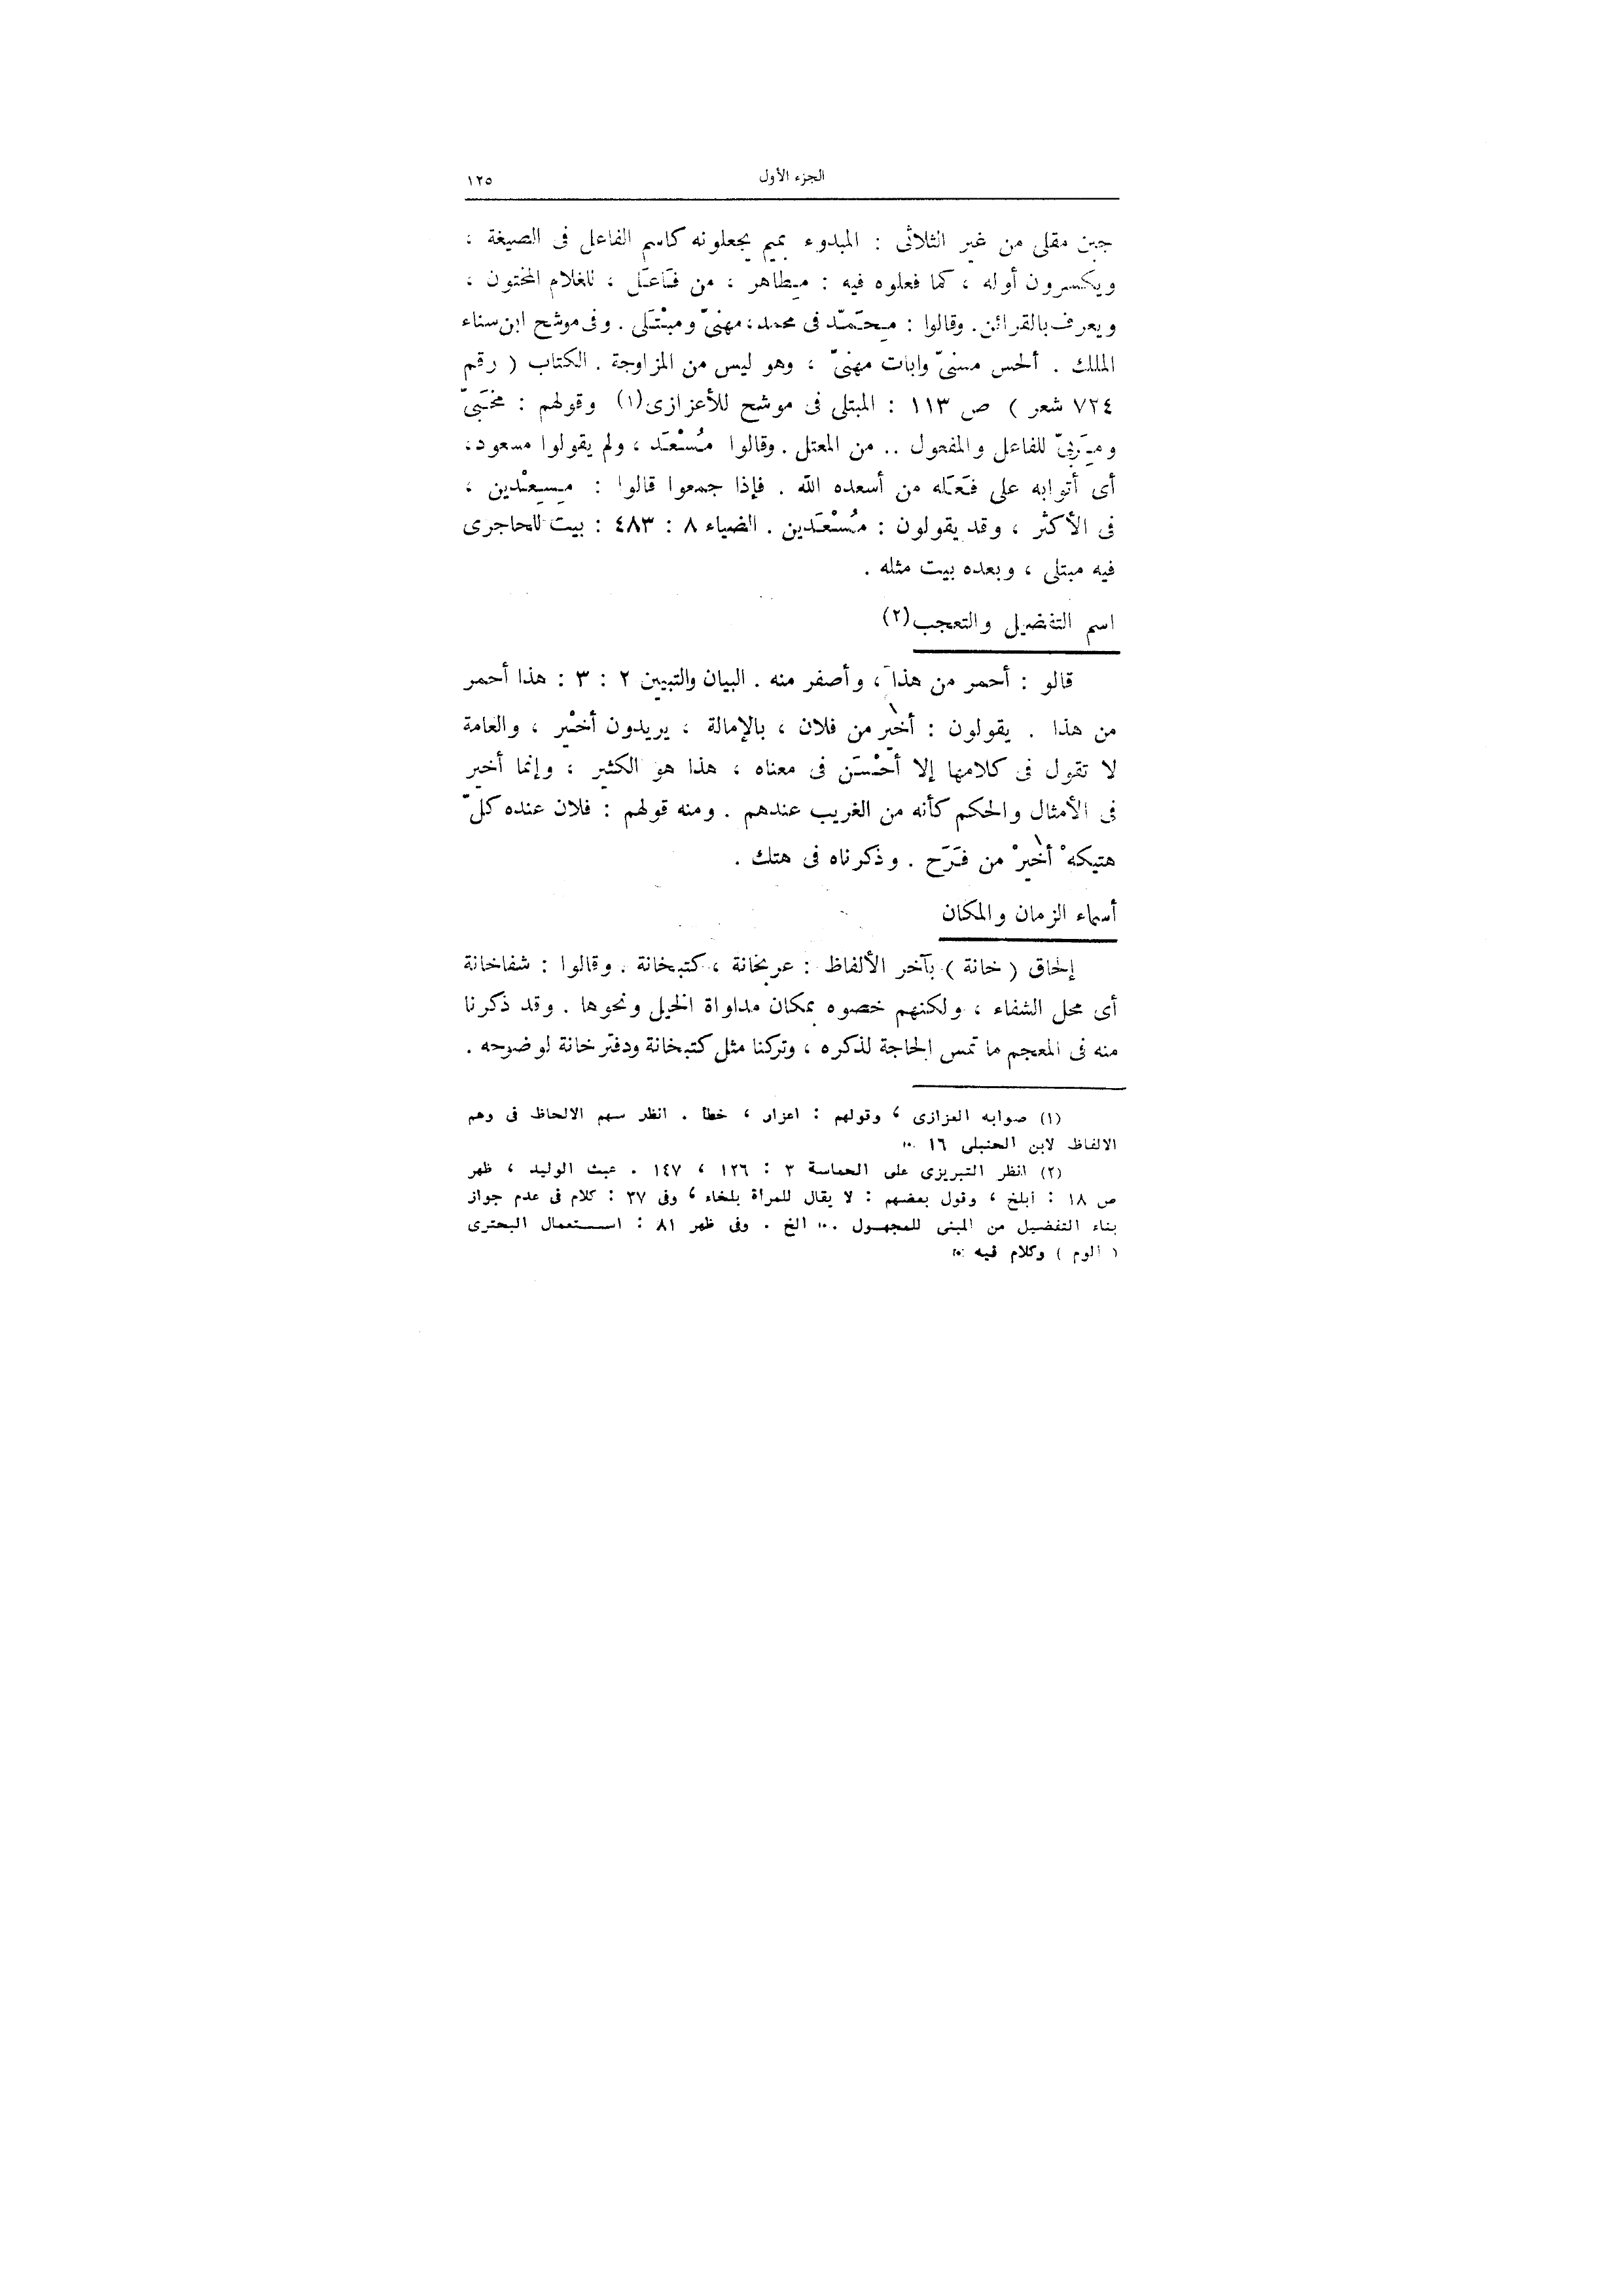 الجزء الأول ١٢٥
جبن مقلى من غير الثلاثى : المبدوء بميم يجعلونه كاسم الفاعل فى الصيغة ،
ويكسرون أوله ، كما فعلوه فيه : مِطاهر ، من فَاعَل ، للغلام المختون ،
ويعرف بالقرائن . وقالوا : مِحَمّد فى محمد ، مهنىّ ومبْتَلى . وفى موشح ابن سناء
الملك . ألحس مسنىّ وابات مهنىّ ، وهو ليس من المزاوجة . الكتاب ( رقم
٧٢٤ شعر ) ص ١١٣ : المبتلى فى موشح للأعزازى(١) وقولهم : مخَبىّ
ومِرَبىّ للفاعل والمفعول .. من المعتل . وقالوا مُسْعَد ، ولم يقولوا مسعود ،
أى أتوابه على فَعَله من أسعده الله . فإذا جمعوا قالوا : مِسِعْدين ،
فى الأكثر ، وقد يقولون : مُسْعَدين . الضياء ٨ : ٤٨٣ : بيت للحاجرى
فيه مبتلى ، وبعده بيت مثله .
اسم التفضيل والتعجب(٢)
قالو : أحمر من هذا ، وأصفر منه . البيان والتبيين ٢ : ٣ : هذا أحمر
من هذا . يقولون : أخير من فلان ، بالإمالة ، يريدون أخْير ، والعامة
لا تقول فى كلامها إلا أحْسَن فى معناه ، هذا هو الكثير ، وإنما أخير
فى الأمثال والحكم كأنه من الغريب عندهم . ومنه قولهم : فلان عنده كلّ
هتيكهْ أخيرْ من فَرَح . وذكرناه فى هتك .
أسماء الزمان والمكان
إلحاق ( خانة ) بآخر الألفاظ : عربخانة ، كتبخانة . وقالوا : شفاخانة
أى محل الشفاء ، ولكنهم خصوه بمكان مداواة الخيل ونحوها . وقد ذكرنا
منه فى المعجم ما تمس الحاجة لذكره ، وتركنا مثل كتبخانة ودفترخانة لوضوحه .
(١) صوابه العزازى ، وقولهم : اعزاز ، خطأ . انظر سهم الالحاظ فى وهم
الالفاظ لابن الحنبلى ١٦ ..
(٢) انظر التبريزى على الحماسة ٣ : ١٢٦ ، ١٤٧ . عبث الوليد ، ظهر
ص ١٨ : أبلخ ، وقول بعضهم : لا يقال للمرأة بلخاء ، وفى ٣٧ : كلام فى عدم جواز
بناء التفضيل من المبنى للمجهول ... الخ . وفى ظهر ٨١ : استعمال البحترى
( الوم ) وكلام فيه ..